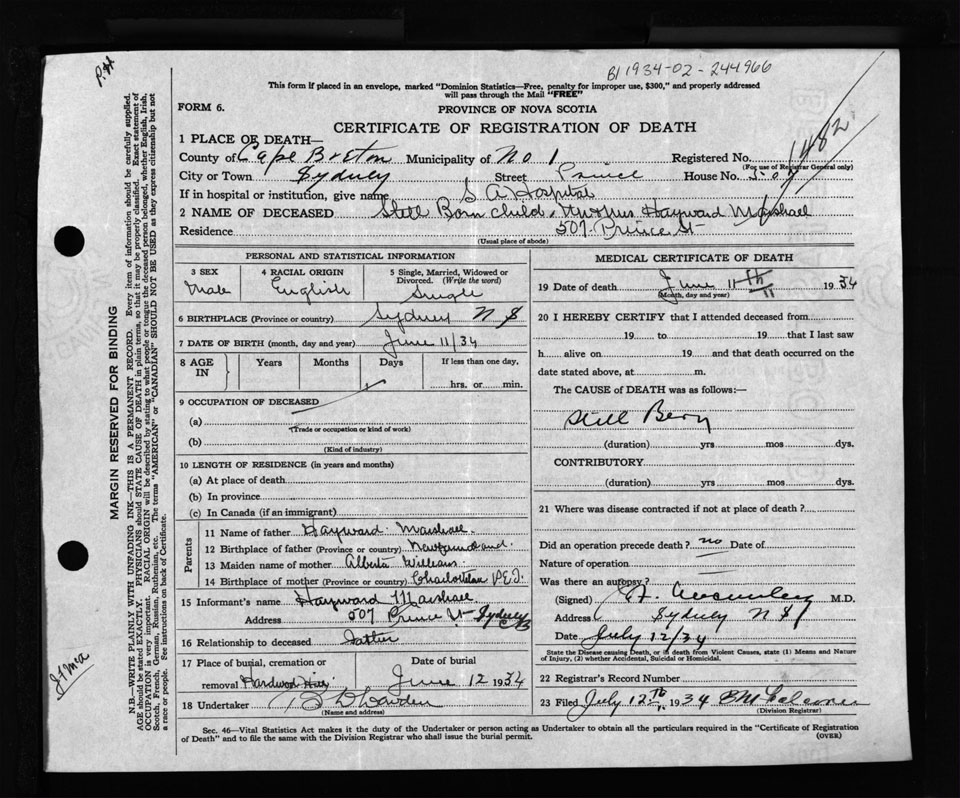 B1 1934-02-244966
This form if placed in an envelope, marked "Dominion Statistics—Free, penalty for improper use, $300," and properly addressed
will pass through the Mail "FREE"
FORM 6.
PROVINCE OF NOVA SCOTIA
CERTIFICATE OF REGISTRATION OF DEATH
1482
1 PLACE OF DEATH—
County of Cape Breton Municipality of No 1 Registered No.
(For use of Registrar General only)
City or Town Sydney Street Prince House No. 507
If in hospital or institution, give name S A Hospital
2 NAME OF DECEASED Still Born child Hayward Marshall
Residence 507 Prince St
(Usual place of abode)
PERSONAL AND STATISTICAL INFORMATION
3 SEX Male
4 RACIAL ORIGIN English
5 Single, Married, Widowed or Divorced. (Write the word) Single
6 BIRTHPLACE (Province or country) Sydney N S
7 DATE OF BIRTH (month, day and year) June 11/34
8 AGE IN Years Months Days If less than one day, hrs. or min.
9 OCCUPATION OF DECEASED
(a)
(Trade or occupation or kind of work)
(b)
(Kind of industry)
10 LENGTH OF RESIDENCE (in years and months)
(a) At place of death
(b) In province
(c) In Canada (if an immigrant)
Parents
11 Name of father Hayward Marshall
12 Birthplace of father (Province or country) Newfoundland
13 Maiden name of mother Alberta Williams
14 Birthplace of mother (Province or country) Charlottetown P.E.I.
15 Informant's name Hayward Marshall
Address 507 Prince St Sydney CB
16 Relationship to deceased Father
17 Place of burial, cremation or removal Hardwood Hill
Date of burial June 12 1934
18 Undertaker
(Name and address)
MEDICAL CERTIFICATE OF DEATH
19 Date of death June 11th 1934
(Month, day and year)
20 I HEREBY CERTIFY that I attended deceased from
19 to 19 that I last saw
h alive on 19 and that death occurred on the
date stated above, at m.
The CAUSE of DEATH was as follows:—
Still Born
(duration) yrs mos dys.
CONTRIBUTORY
(duration) yrs mos dys.
21 Where was disease contracted if not at place of death?
Did an operation precede death? no Date of
Nature of operation
Was there an autopsy?
(Signed) M.D.
Address Sydney N S
Date July 12/34
State the Disease causing Death, or in death from Violent Causes, state (1) Means and Nature of Injury, (2) whether Accidental, Suicidal or Homicidal.
22 Registrar's Record Number
23 Filed July 12th 1934
(Division Registrar)
Sec. 46—Vital Statistics Act makes it the duty of the Undertaker or person acting as Undertaker to obtain all the particulars required in the "Certificate of Registration
of Death" and to file the same with the Division Registrar who shall issue the burial permit.
(OVER)
MARGIN RESERVED FOR BINDING
N.B.—WRITE PLAINLY WITH UNFADING INK—THIS IS A PERMANENT RECORD. Every item of information should be carefully supplied.
AGE should be stated EXACTLY. PHYSICIANS should STATE CAUSE OF DEATH in plain terms, so that it may be properly classified. Exact statement of
OCCUPATION is very important. RACIAL ORIGIN will be described by stating to what people or tongue the deceased person belonged, whether English, Irish,
Scotch, French, German, Russian, Ruthenian, etc. The terms "AMERICAN" or "CANADIAN" SHOULD NOT BE USED as they express citizenship but not
a race or people. See instructions on back of Certificate.